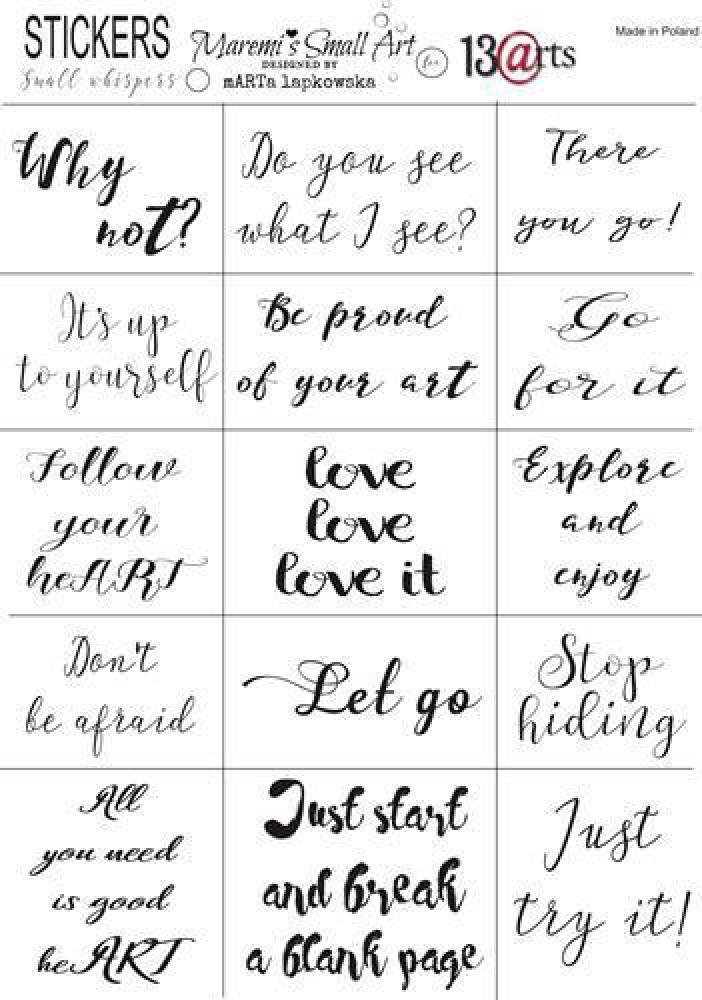 STICKERS
Small whispers
Maremi's Small Art
DESIGNED BY
mARTa lapkowska
for
13@rts
Made in Poland
Why
not?
Do you see
what I see?
There
you go!
It's up
to yourself
Be proud
of your art
Go
for it
Follow
your
heART
love
love
love it
Explore
and
enjoy
Don't
be afraid
Let go
Stop
hiding
All
you need
is good
heART
Just start
and break
a blank page
Just
try it!